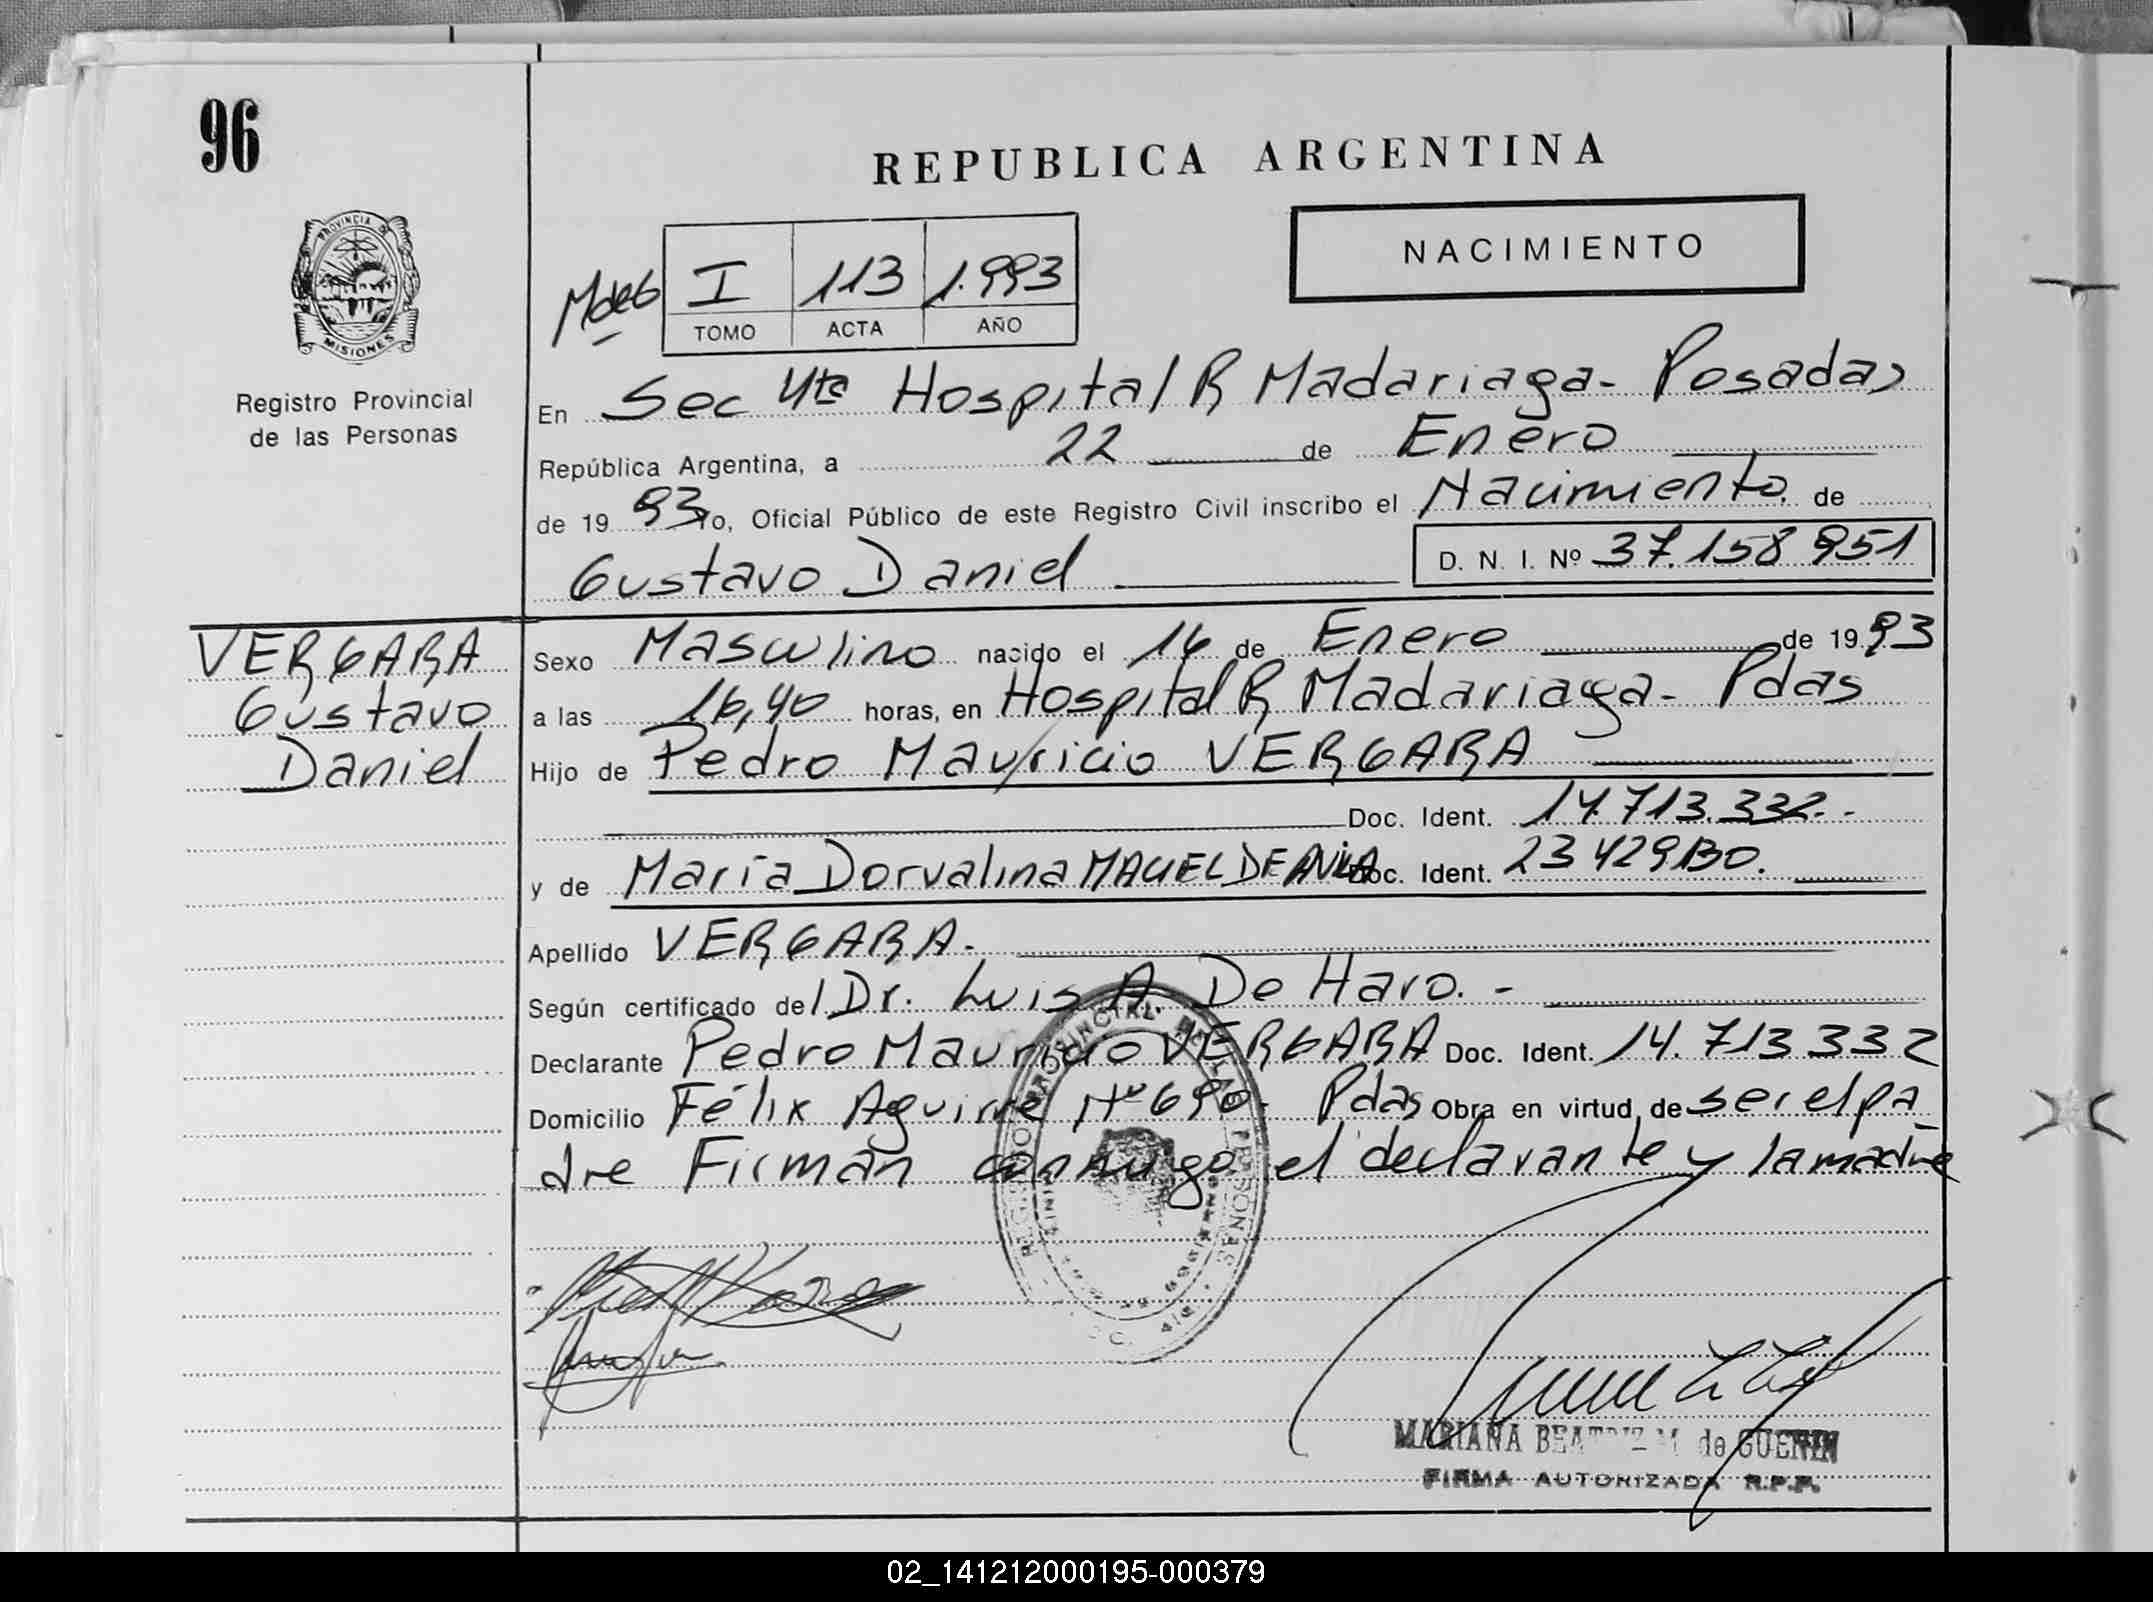 96
REPUBLICA ARGENTINA
NACIMIENTO
PROVINCIA DE
MISIONES
Registro Provincial
de las Personas
I 113 1.993
TOMO ACTA AÑO
En Sec 4ta Hospital R Madariaga - Posadas
República Argentina, a 22 de Enero
de 19 93 Yo, Oficial Público de este Registro Civil inscribo el Nacimiento de
Gustavo Daniel D. N. I. Nº 37.158 951
VERGARA
Gustavo
Daniel
Sexo Masculino nacido el 16 de Enero de 19 93
a las 16,40 horas, en Hospital R Madariaga - Pdas
Hijo de Pedro Mauricio VERGARA
Doc. Ident. 14.713.332.-
y de María Dorvalina MACIEL DE AVILA Doc. Ident. 23 429 130.
Apellido VERGARA.
Según certificado del Dr. Luis A De Haro. -
Declarante Pedro Mauricio VERGARA Doc. Ident. 14.713 332
Domicilio Félix Aguirre Nº 690 - Pdas Obra en virtud de ser el pa
dre Firmán conmigo el declarante y la madre
MARIANA BEATRIZ M. de GUERIN
FIRMA AUTORIZADA R.P.P.
02_141212000195-000379